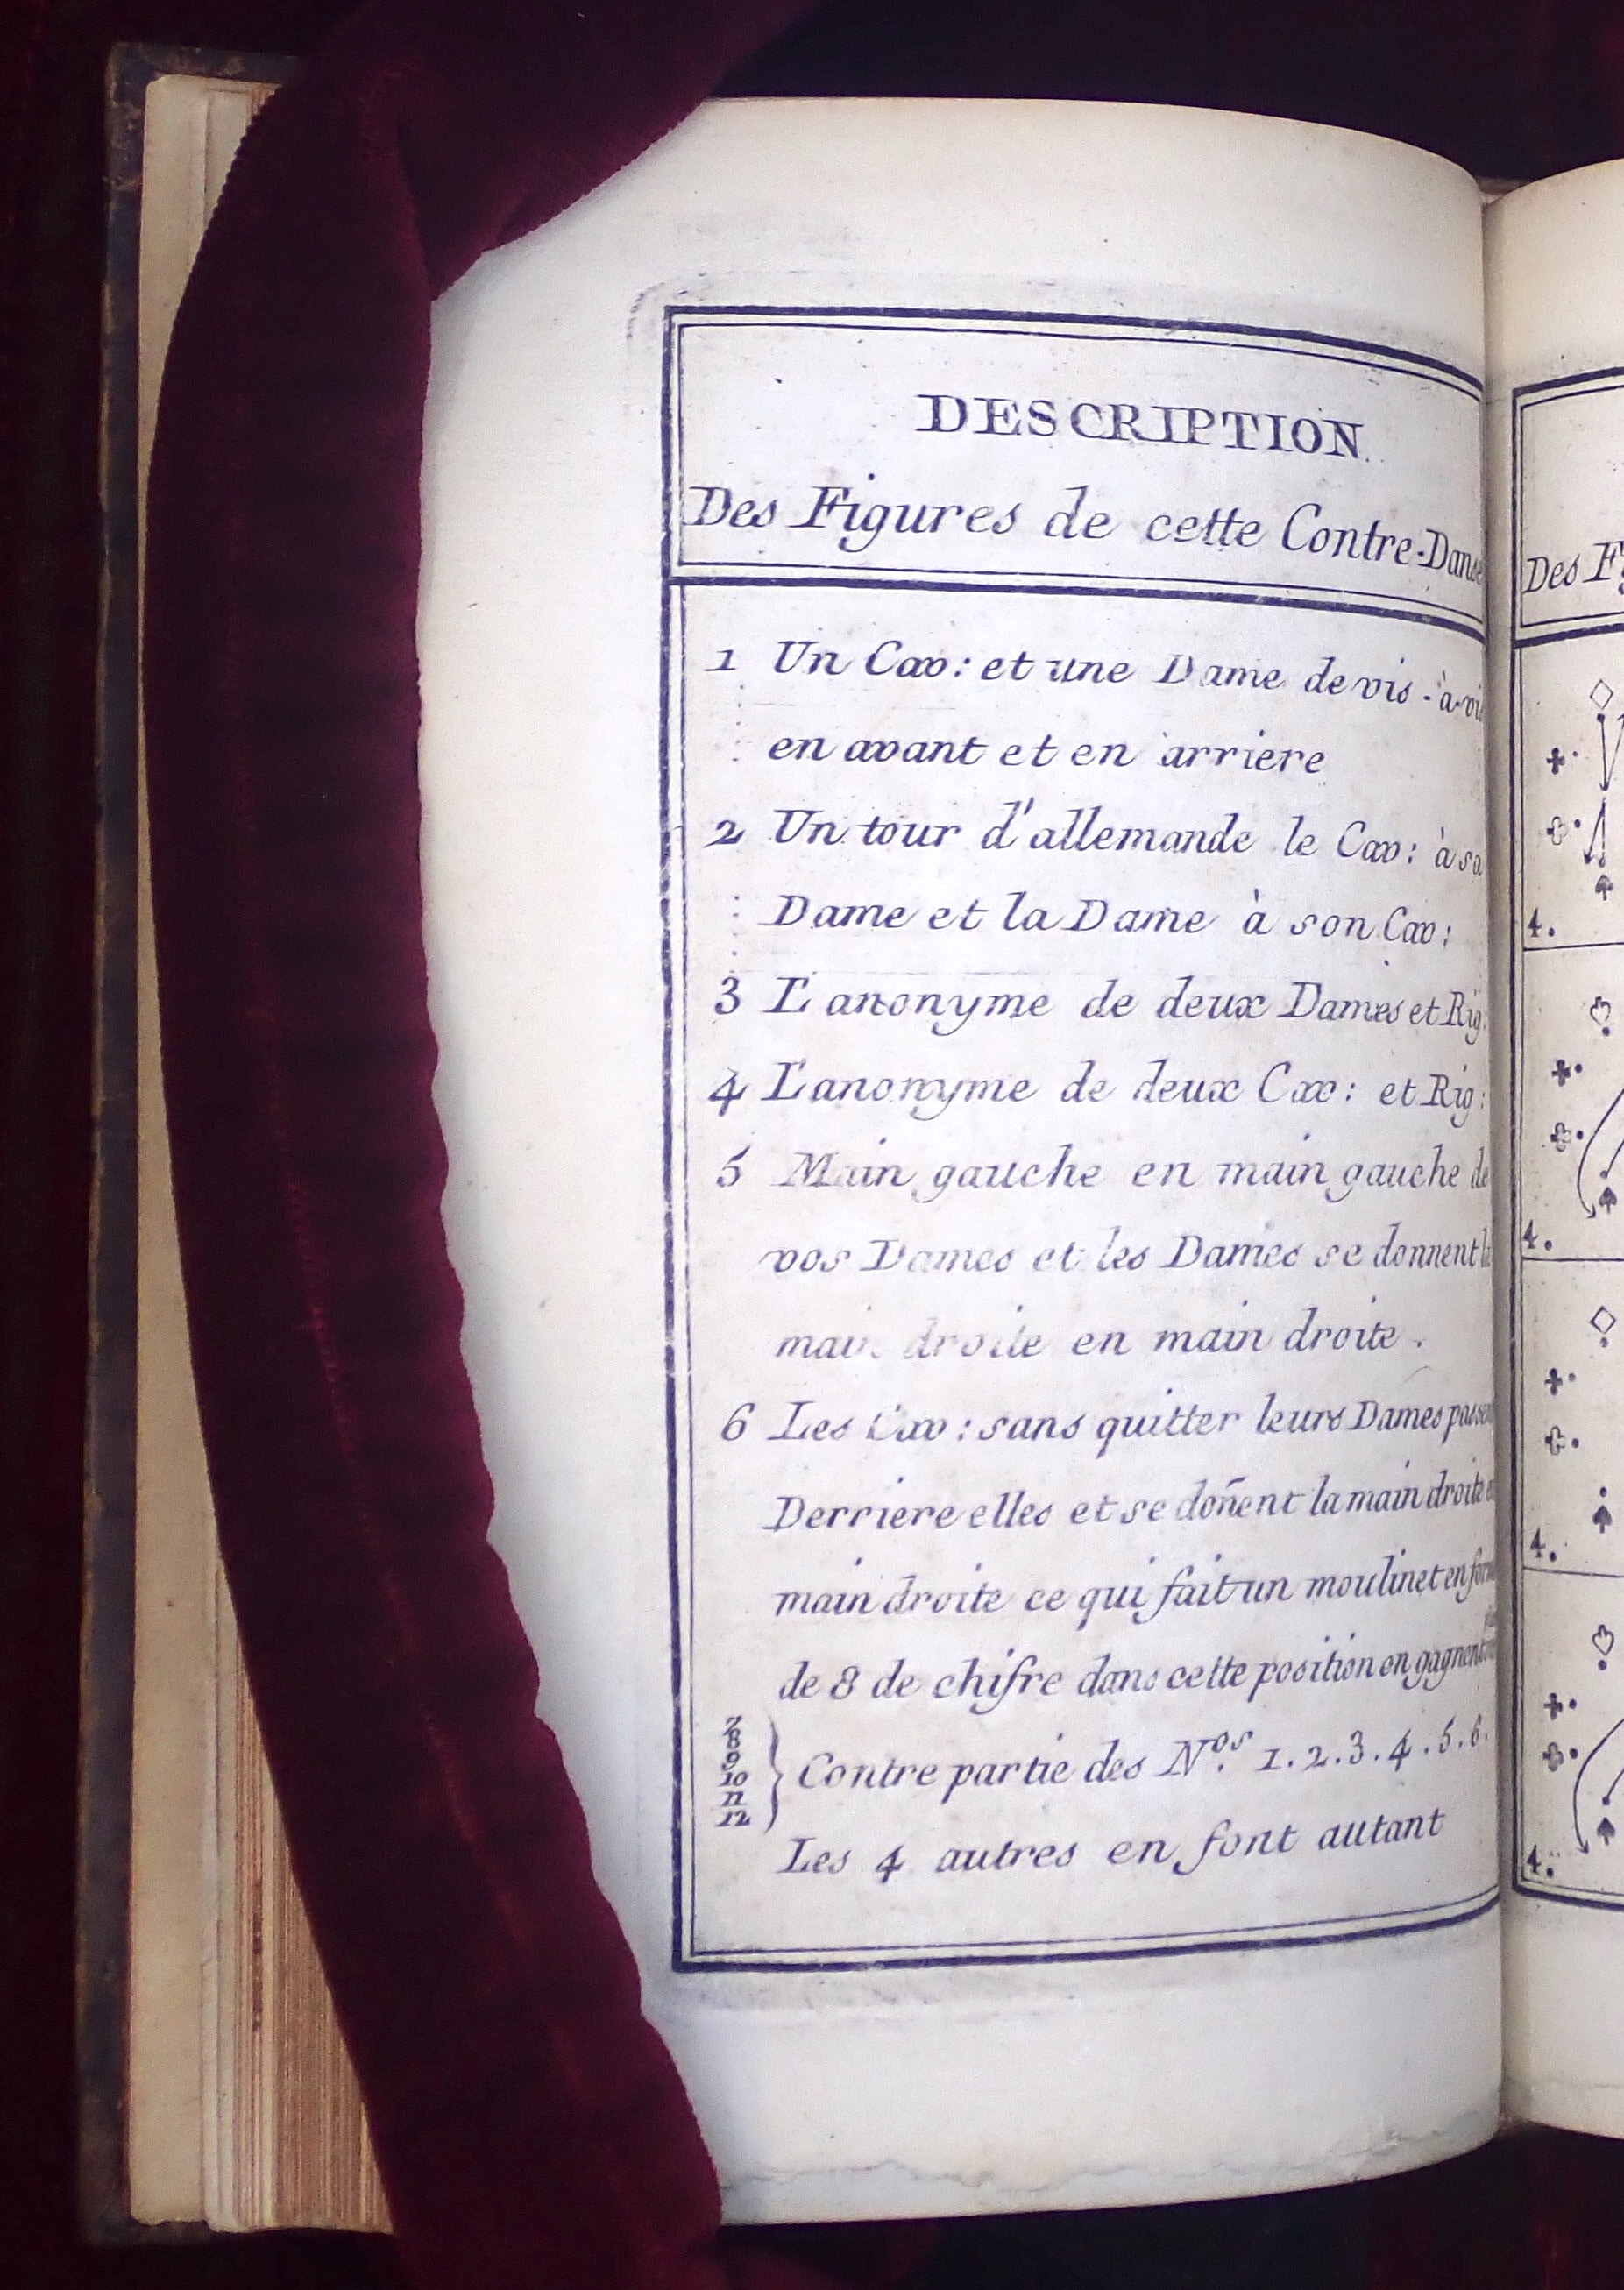 DESCRIPTION
Des Figures de cette Contre-Danse
1 Un Cav: et une Dame de vis-à-vis
en avant et en arriere
2 Un tour d'allemande le Cav: à sa
Dame et la Dame à son Cav:
3 L'anonyme de deux Dames et Rig:
4 L'anonyme de deux Cav: et Rig:
5 Main gauche en main gauche de
vos Dames et les Dames se donnent la
main droite en main droite.
6 Les Cav: sans quitter leurs Dames passent
Derriere elles et se doñent la main droite en
main droite ce qui fait un moulinet en forme
de 8 de chifre dans cette position en gagnent
7
8
9
10
11
12
} Contre partie des N.os 1.2.3.4.5.6.
Les 4 autres en font autant
Des F
4.
4.
4.
4.